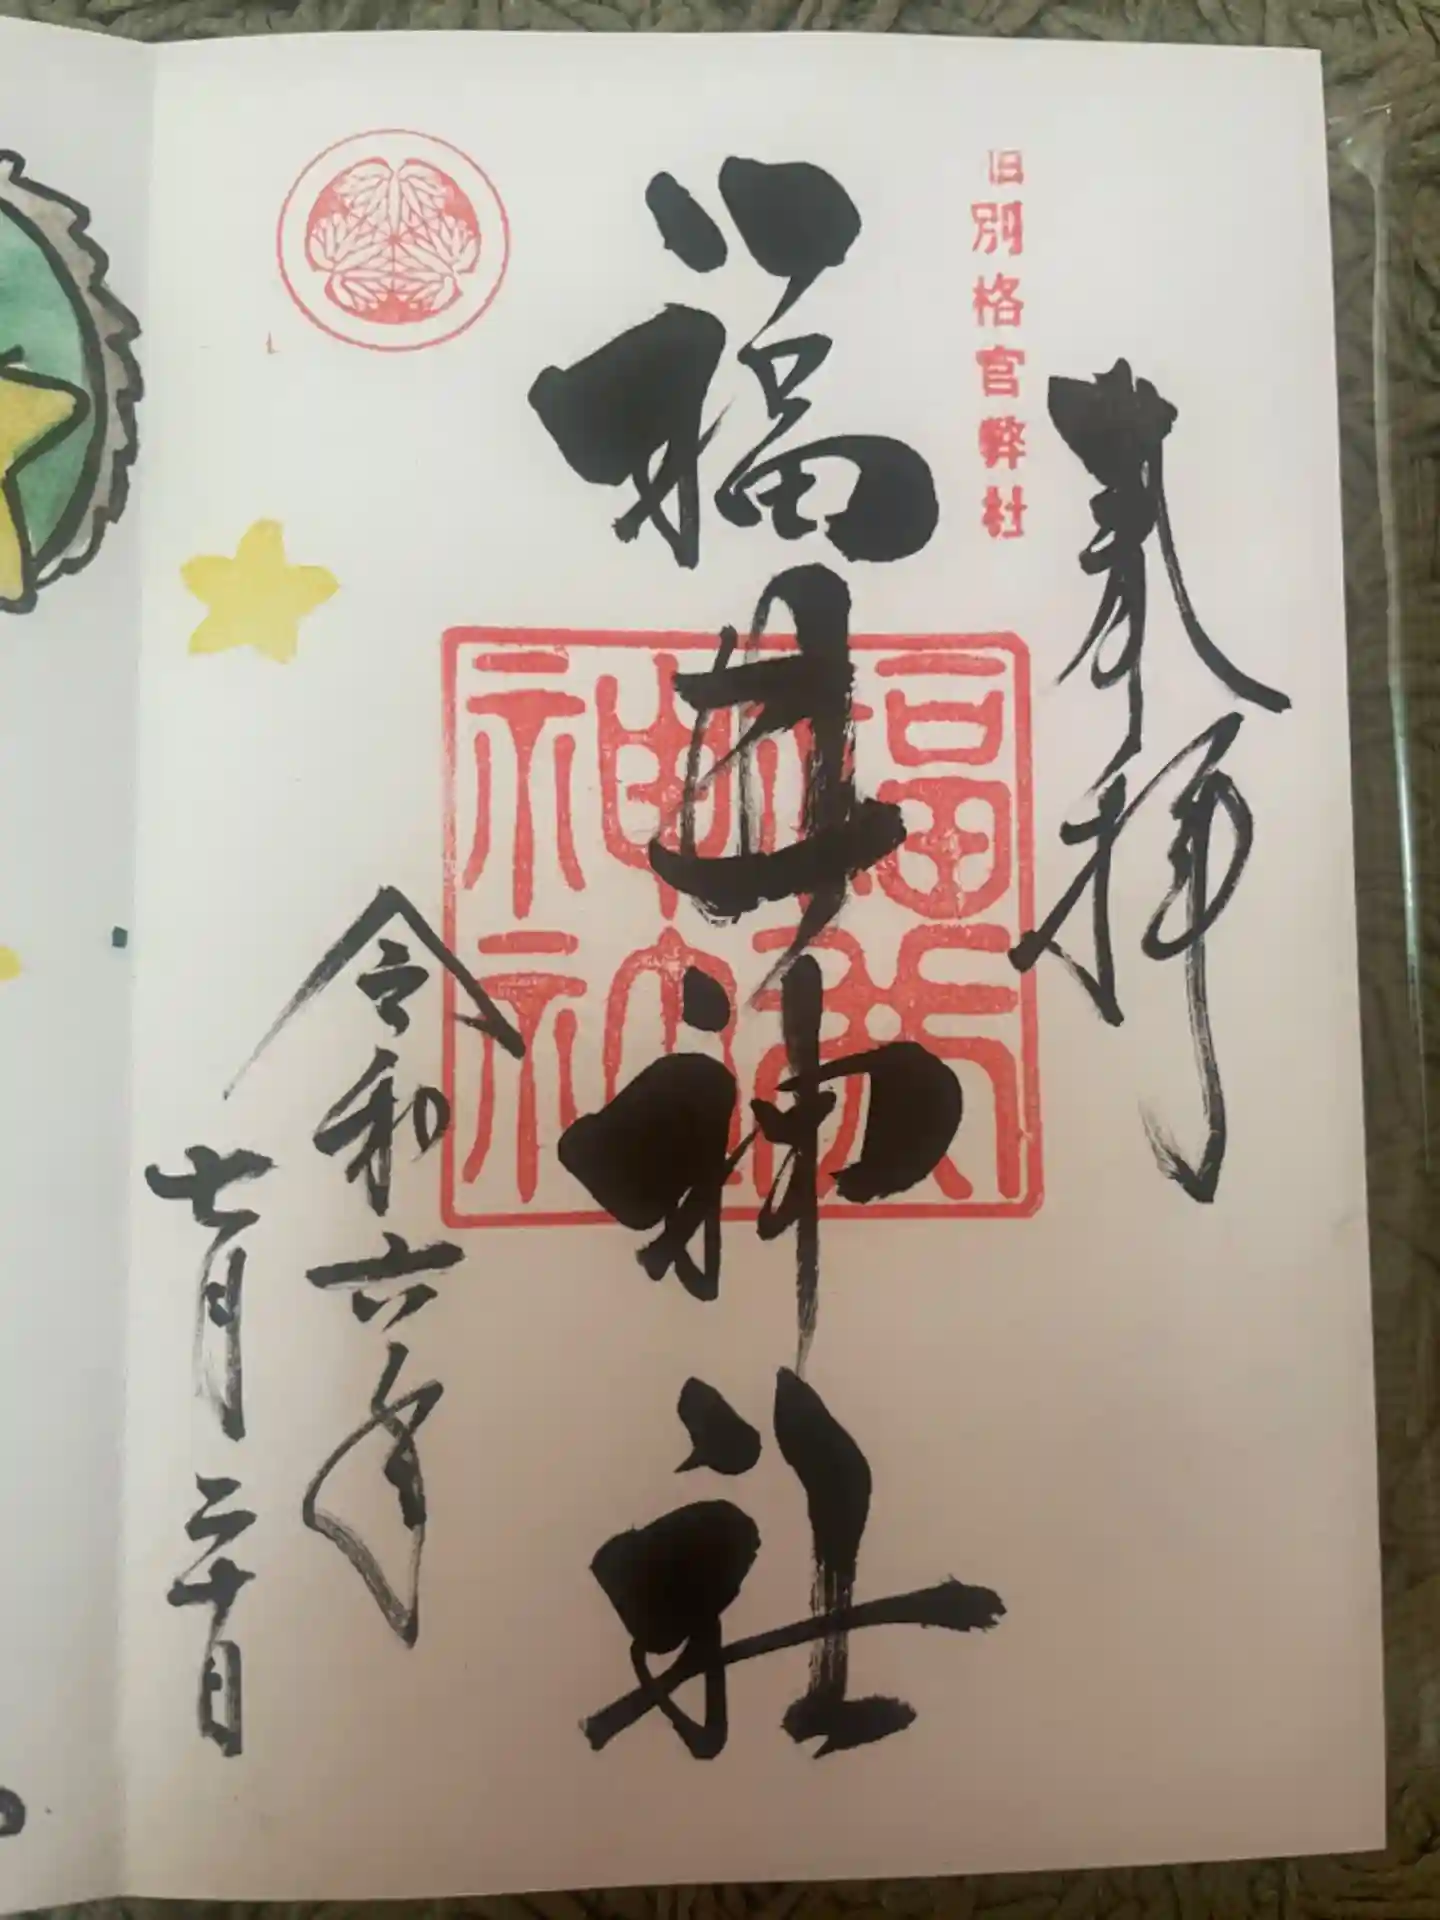 奉拝
旧別格官幣社
福井神社
令和六年
七月二十日